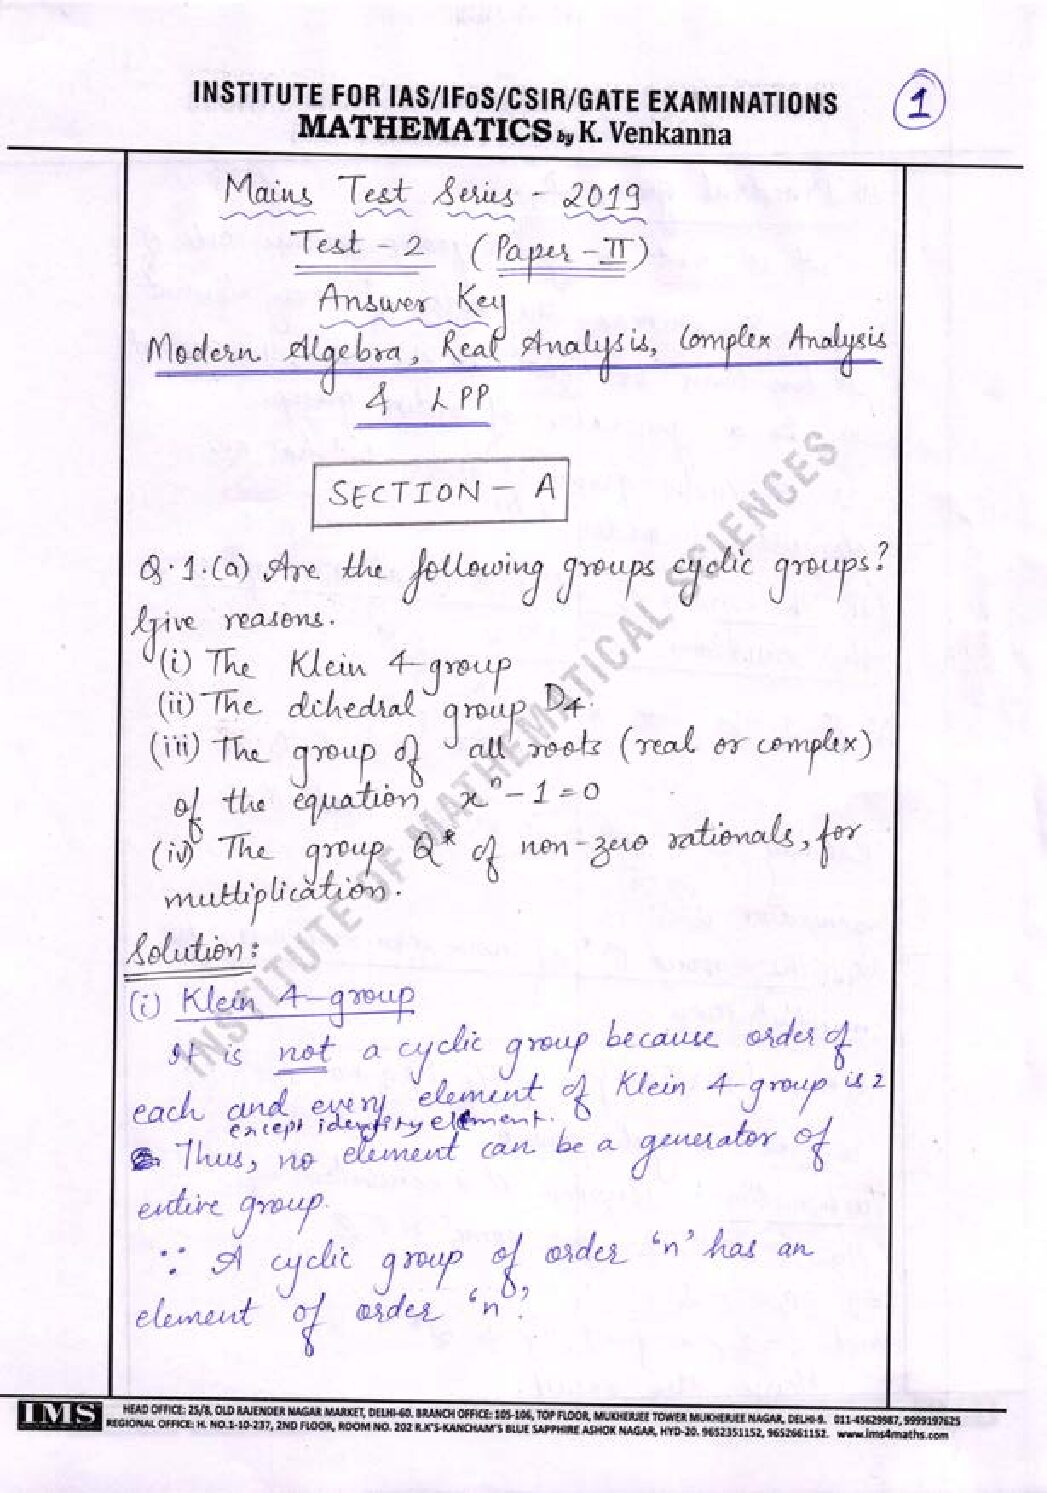 INSTITUTE FOR IAS/IFoS/CSIR/GATE EXAMINATIONS
MATHEMATICS by K. Venkanna
1
Mains Test Series - 2019
Test - 2 (Paper - II)
Answer Key
Modern Algebra, Real Analysis, Complex Analysis
& LPP
SECTION - A
Q.1.(a) Are the following groups cyclic groups?
Give reasons.
(i) The Klein 4-group
(ii) The dihedral group D4.
(iii) The group of all roots (real or complex)
of the equation xⁿ - 1 = 0
(iv) The group Q* of non-zero rationals, for
multiplication.
Solution:
(i) Klein 4-group
It is not a cyclic group because order of
each and every element of Klein 4-group is 2
except identity element.
Thus, no element can be a generator of
entire group.
∵ A cyclic group of order 'n' has an
element of order 'n'.
INSTITUTE OF MATHEMATICAL SCIENCES
IMS
HEAD OFFICE: 25/8, OLD RAJENDER NAGAR MARKET, DELHI-60. BRANCH OFFICE: 105-106, TOP FLOOR, MUKHERJEE TOWER MUKHERJEE NAGAR, DELHI-9. 011-45629987, 9999197625
REGIONAL OFFICE: H. NO.1-10-237, 2ND FLOOR, ROOM NO. 202 R.K'S-KANCHAM'S BLUE SAPPHIRE ASHOK NAGAR, HYD-20. 9652351152, 9652661152. www.ims4maths.com